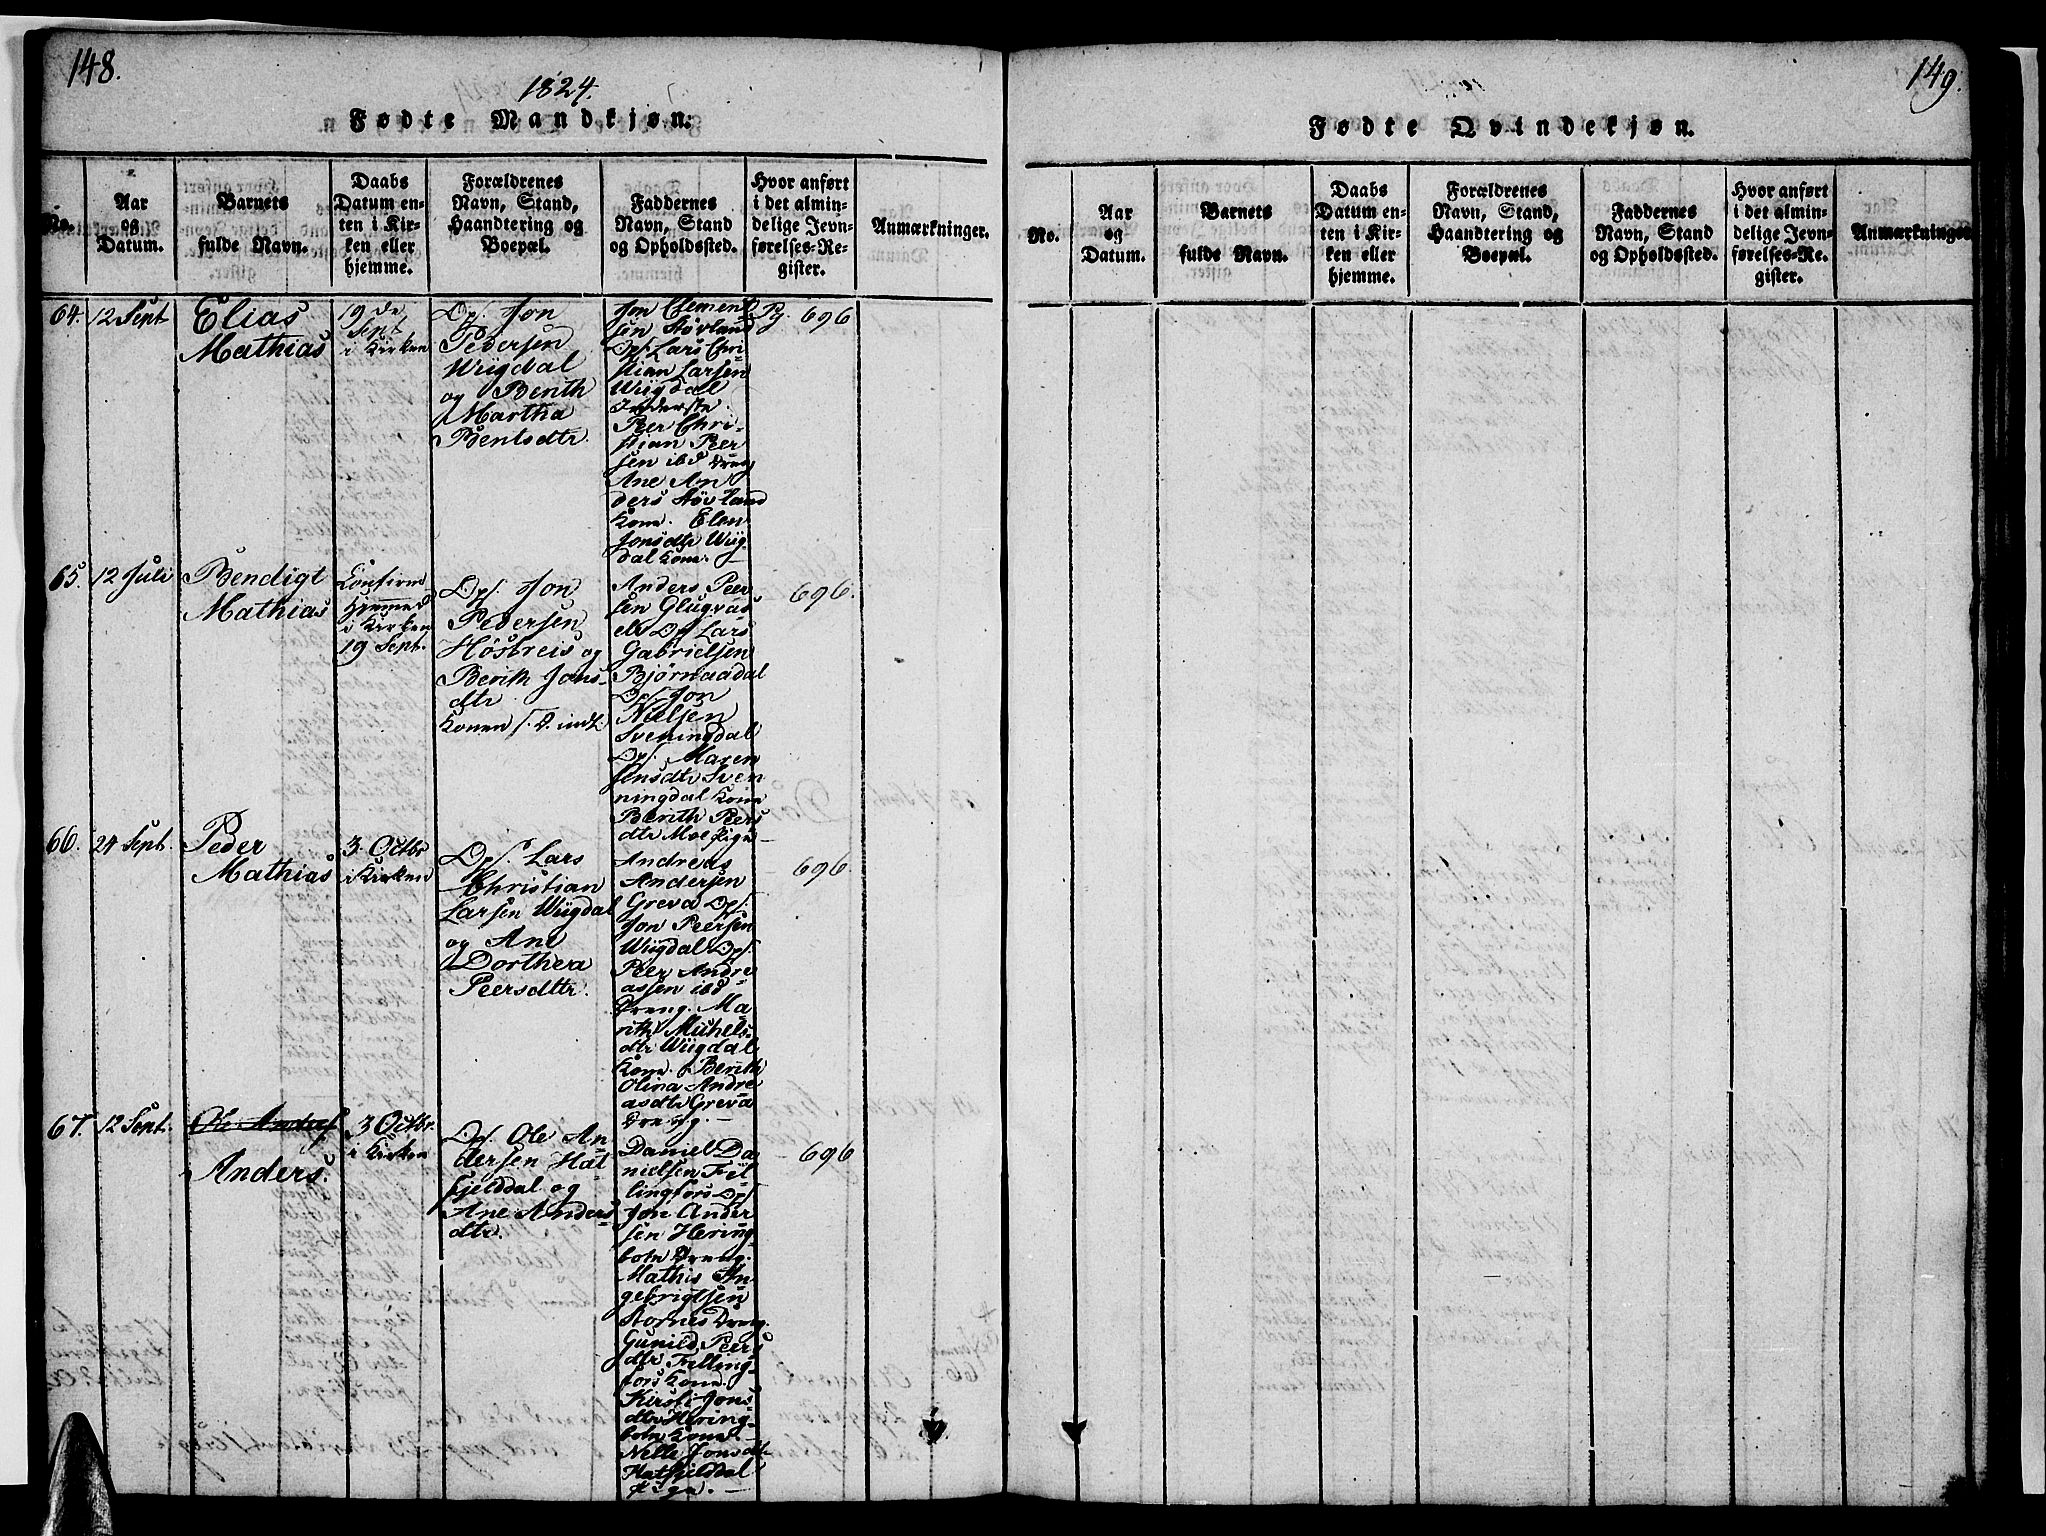 148.
1824.
Fødte Mandkjøn.
No.
Aar
og
Datum.
Barnets
fulde Navn.
Daabs
Datum en-
ten i Kir-
ken eller
hjemme.
Forældrenes
Navn, Stand,
Haandtering og
Boepæl.
Faddernes
Navn, Stand
og Opholdssted.
Hvor anført
i det almin-
delige Jevn-
førelses-Re-
gister.
Anmærkninger.
64.
12 Sept
Elias
Mathias
19 de
Sept
i Kirken
Dpf. Jon
Pedersen
Wügdal
og Berith
Martha
Bentsdtr.
Jon Clement
sen Høvland
Dpf. Lars Chri-
stian Larsen
Wügdal
Inderste.
Peer Chri-
stian Peer
sen ibd Dreng
Ane An
ders Høvland
Kone. Elen
Jonsdtr Wüg-
dal Kone.
Pg. 696
65.
12 Juli
Bendigt
Mathias
Confirm
Hjemmed
i Kirken
19 Sept.
Dpf. Jon
Pedersen
Høsbreis og
Berith Jons-
dtr
Konen
Anders Peer
sen Glugvas
els Dpf Lars
Gabrielsen
Bjørnaadal
Dpf. Jon
Nielsen
Sveningdal
Dpf. Maren
Jensdtr Sven
ningdal Kone
Berith Peers
dtr Moe Pige
696.
66.
24 Sept.
Peder
Mathias
3. Octbr
i Kirken
Dpf. Lars
Christian
Larsen Wügdal
og Ane
Dorthea
Peersdtr.
Andreas
Andersen
Greva Dpf.
Jon Peersen
Wügdal Dpf.
Peer Andre
assen ibd
Dreng. Ma
rith Michels
dtr Wügdal
Kone. Berith
Olina Andre
asdtr Greva
Dreng.
696
67.
12 Sept.
Ole Andersf
Anders.
3 Octbr.
i Kirken
Dpf. Ole An
dersen Hat
fjelddal og
Ane Anders
dtr.
Daniel Da
nielsen Fil
lingfors Dpf
Jon Ander
sen Hering
botn Dreng.
Mathis In
gebrigtsen
Dreng.
Gunild Peers
dtr Filling
fors Kone.
Kirsti Jons
dtr Hering-
botn Kone.
Nelle Jonsdtr
Hatfjelddal
Pige.
696
149.
Fødte Qvindekjøn.
No.
Aar
og
Datum.
Barnets
fulde Navn.
Daabs
Datum en-
ten i Kir-
ken eller
hjemme.
Forældrenes
Navn, Stand,
Haandtering og
Boepæl.
Faddernes
Navn, Stand
og Opholdssted.
Hvor anført
i det almin-
delige Jevn-
førelses-Re-
gister.
Anmærkninger